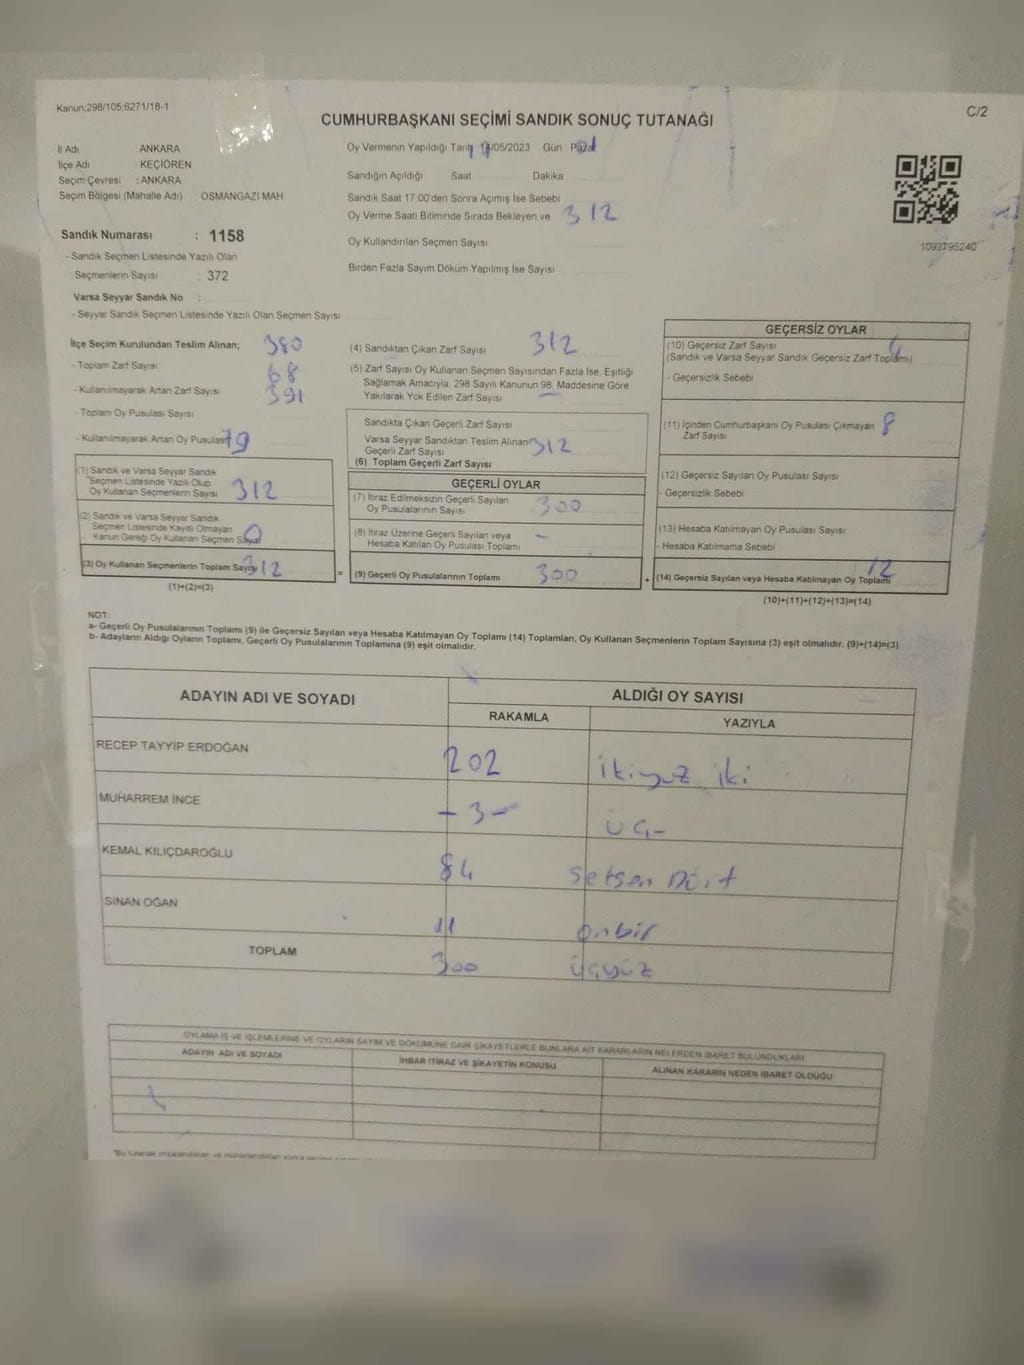 Kanun;298/105;6271/18-1
C/2
CUMHURBAŞKANI SEÇİMİ SANDIK SONUÇ TUTANAĞI
İl Adı ANKARA
İlçe Adı : KEÇİÖREN
Seçim Çevresi : ANKARA
Seçim Bölgesi (Mahalle Adı) OSMANGAZI MAH
Sandık Numarası : 1158
- Sandık Seçmen Listesinde Yazılı Olan
Seçmenlerin Sayısı : 372
Varsa Seyyar Sandık No :
- Seyyar Sandık Seçmen Listesinde Yazılı Olan Seçmen Sayısı
Oy Vermenin Yapıldığı Tarih 14/05/2023 Gün Pazar
Sandığın Açıldığı Saat Dakika
Sandık Saat 17:00'den Sonra Açımış İse Sebebi
Oy Verme Saati Bitiminde Sırada Bekleyen ve 312
Oy Kullandırılan Seçmen Sayısı
Birden Fazla Sayım Döküm Yapılmış İse Sayısı
1093795240
İlçe Seçim Kurulundan Teslim Alınan; 380
- Toplam Zarf Sayısı 68
- Kullanılmayarak Artan Zarf Sayısı 391
- Toplam Oy Pusulası Sayısı
- Kullanılmayarak Artan Oy Pusulası 79
(1) Sandık ve Varsa Seyyar Sandık
Seçmen Listesinde Yazılı Olup
Oy Kullanan Seçmenlerin Sayısı 312
(2) Sandık ve Varsa Seyyar Sandık
Seçmen Listesinde Kayıtlı Olmayan
Kanun Gereği Oy Kullanan Seçmen Sayısı 0
(3) Oy Kullanan Seçmenlerin Toplam Sayısı 312
(1)+(2)=(3)
(4) Sandıktan Çıkan Zarf Sayısı 312
(5) Zarf Sayısı Oy Kullanan Seçmen Sayısından Fazla İse, Eşitliği
Sağlamak Amacıyla, 298 Sayılı Kanunun 98. Maddesine Göre
Yakılarak Yok Edilen Zarf Sayısı —
Sandıkta Çıkan Geçerli Zarf Sayısı
Varsa Seyyar Sandıktan Teslim Alınan 312
Geçerli Zarf Sayısı
(6) Toplam Geçerli Zarf Sayısı
GEÇERLİ OYLAR
(7) İtiraz Edilmeksizin Geçerli Sayılan
Oy Pusulalarının Sayısı 300
(8) İtiraz Üzerine Geçerli Sayılan veya
Hesaba Katılan Oy Pusulası Toplamı —
= (9) Geçerli Oy Pusulalarının Toplamı 300
GEÇERSİZ OYLAR
(10) Geçersiz Zarf Sayısı 4
(Sandık ve Varsa Seyyar Sandık Geçersiz Zarf Toplamı)
- Geçersizlik Sebebi
(11) İçinden Cumhurbaşkanı Oy Pusulası Çıkmayan 8
Zarf Sayısı
(12) Geçersiz Sayılan Oy Pusulası Sayısı
- Geçersizlik Sebebi
(13) Hesaba Katılmayan Oy Pusulası Sayısı
- Hesaba Katılmama Sebebi
+ (14) Geçersiz Sayılan veya Hesaba Katılmayan Oy Toplamı 12
(10)+(11)+(12)+(13)=(14)
NOT:
a- Geçerli Oy Pusulalarının Toplamı (9) ile Geçersiz Sayılan veya Hesaba Katılmayan Oy Toplamı (14) Toplamları, Oy Kullanan Seçmenlerin Toplam Sayısına (3) eşit olmalıdır. (9)+(14)=(3)
b- Adayların Aldığı Oyların Toplamı, Geçerli Oy Pusulalarının Toplamına (9) eşit olmalıdır.
ADAYIN ADI VE SOYADI ALDIĞI OY SAYISI
RAKAMLA YAZIYLA
RECEP TAYYİP ERDOĞAN 202 ikiyüz iki
MUHARREM İNCE -3- üç-
KEMAL KILIÇDAROĞLU 84 Setsen Dört
SİNAN OĞAN 11 onbir
TOPLAM 300 üçyüz
OYLAMA İŞ VE İŞLEMLERİNE VE OYLARIN SAYIM VE DÖKÜMÜNE DAİR ŞİKAYETLERLE BUNLARA AİT KARARLARIN NELERDEN İBARET BULUNDUKLARI
ADAYIN ADI VE SOYADI İHBAR İTİRAZ VE ŞİKAYETİN KONUSU ALINAN KARARIN NEDEN İBARET OLDUĞU